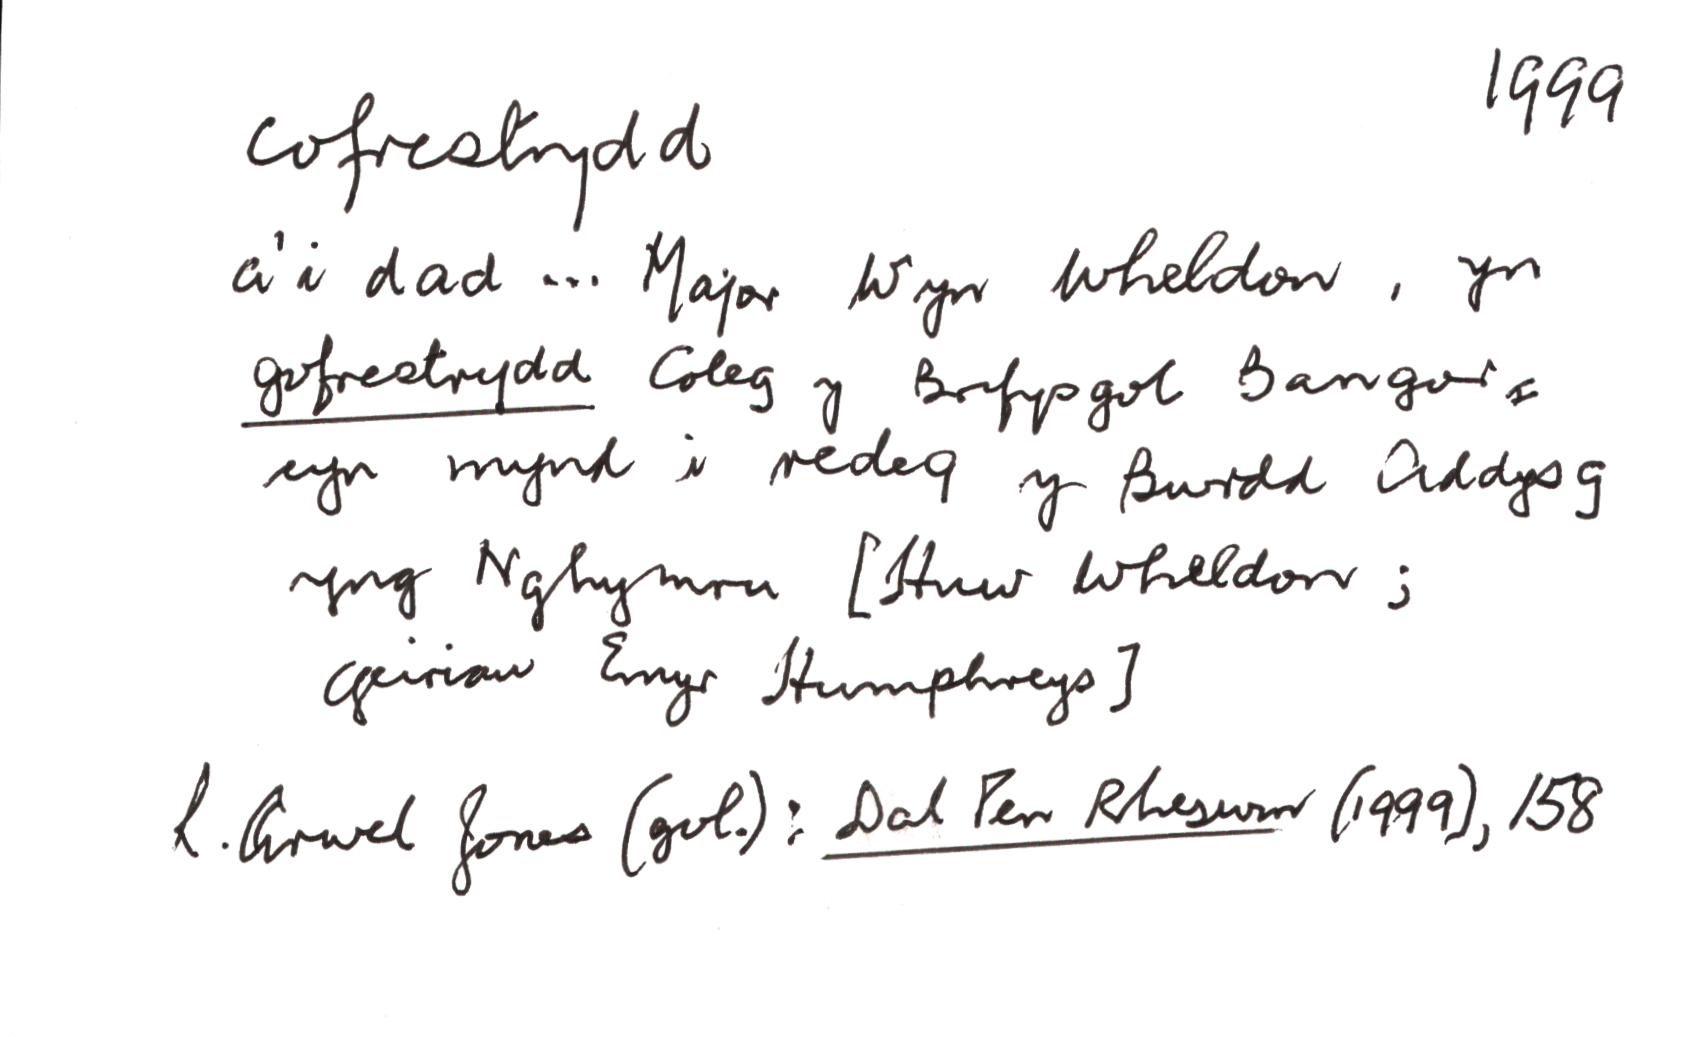 1999
cofrestrydd
a'i dad ... Major Wyn Wheldon, yn
gofrestrydd Coleg y Brifysgol Bangor
cyn mynd i redeg y Bwrdd Addysg
yng Nghymru [Huw Wheldon;
geiriau Emyr Humphreys]
R. Arwel Jones (gol.): Dal Pen Rheswm (1999), 158